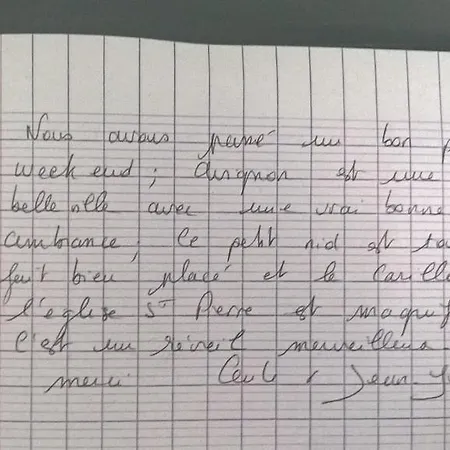 Nous avons passé un bon p
week end ; Avignon est une
belle ville avec une vrai bonne
ambiance, le petit nid est to
fait bien placé et le Carillo
l'église St Pierre est magnif
C'est un réveil merveilleux.
merci Jean-